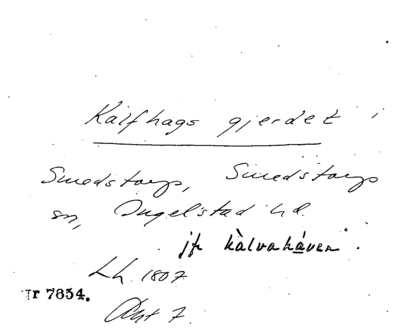 Kalfhags gjerdet
Smedstorps, Smedstorps
sn, Ingelstad hd.
jfr kàlvahåven
Lh. 1807
Akt 7.
r 7854.